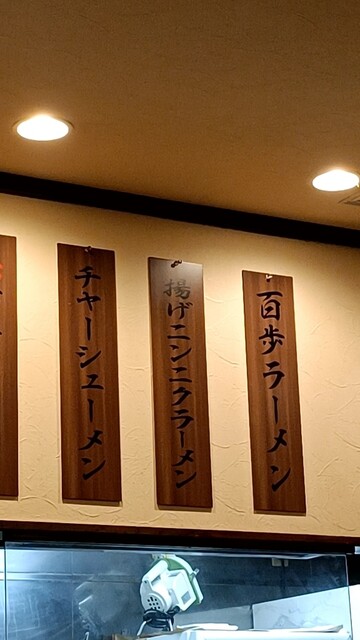 百歩ラーメン
揚げニンニクラーメン
チャーシューメン